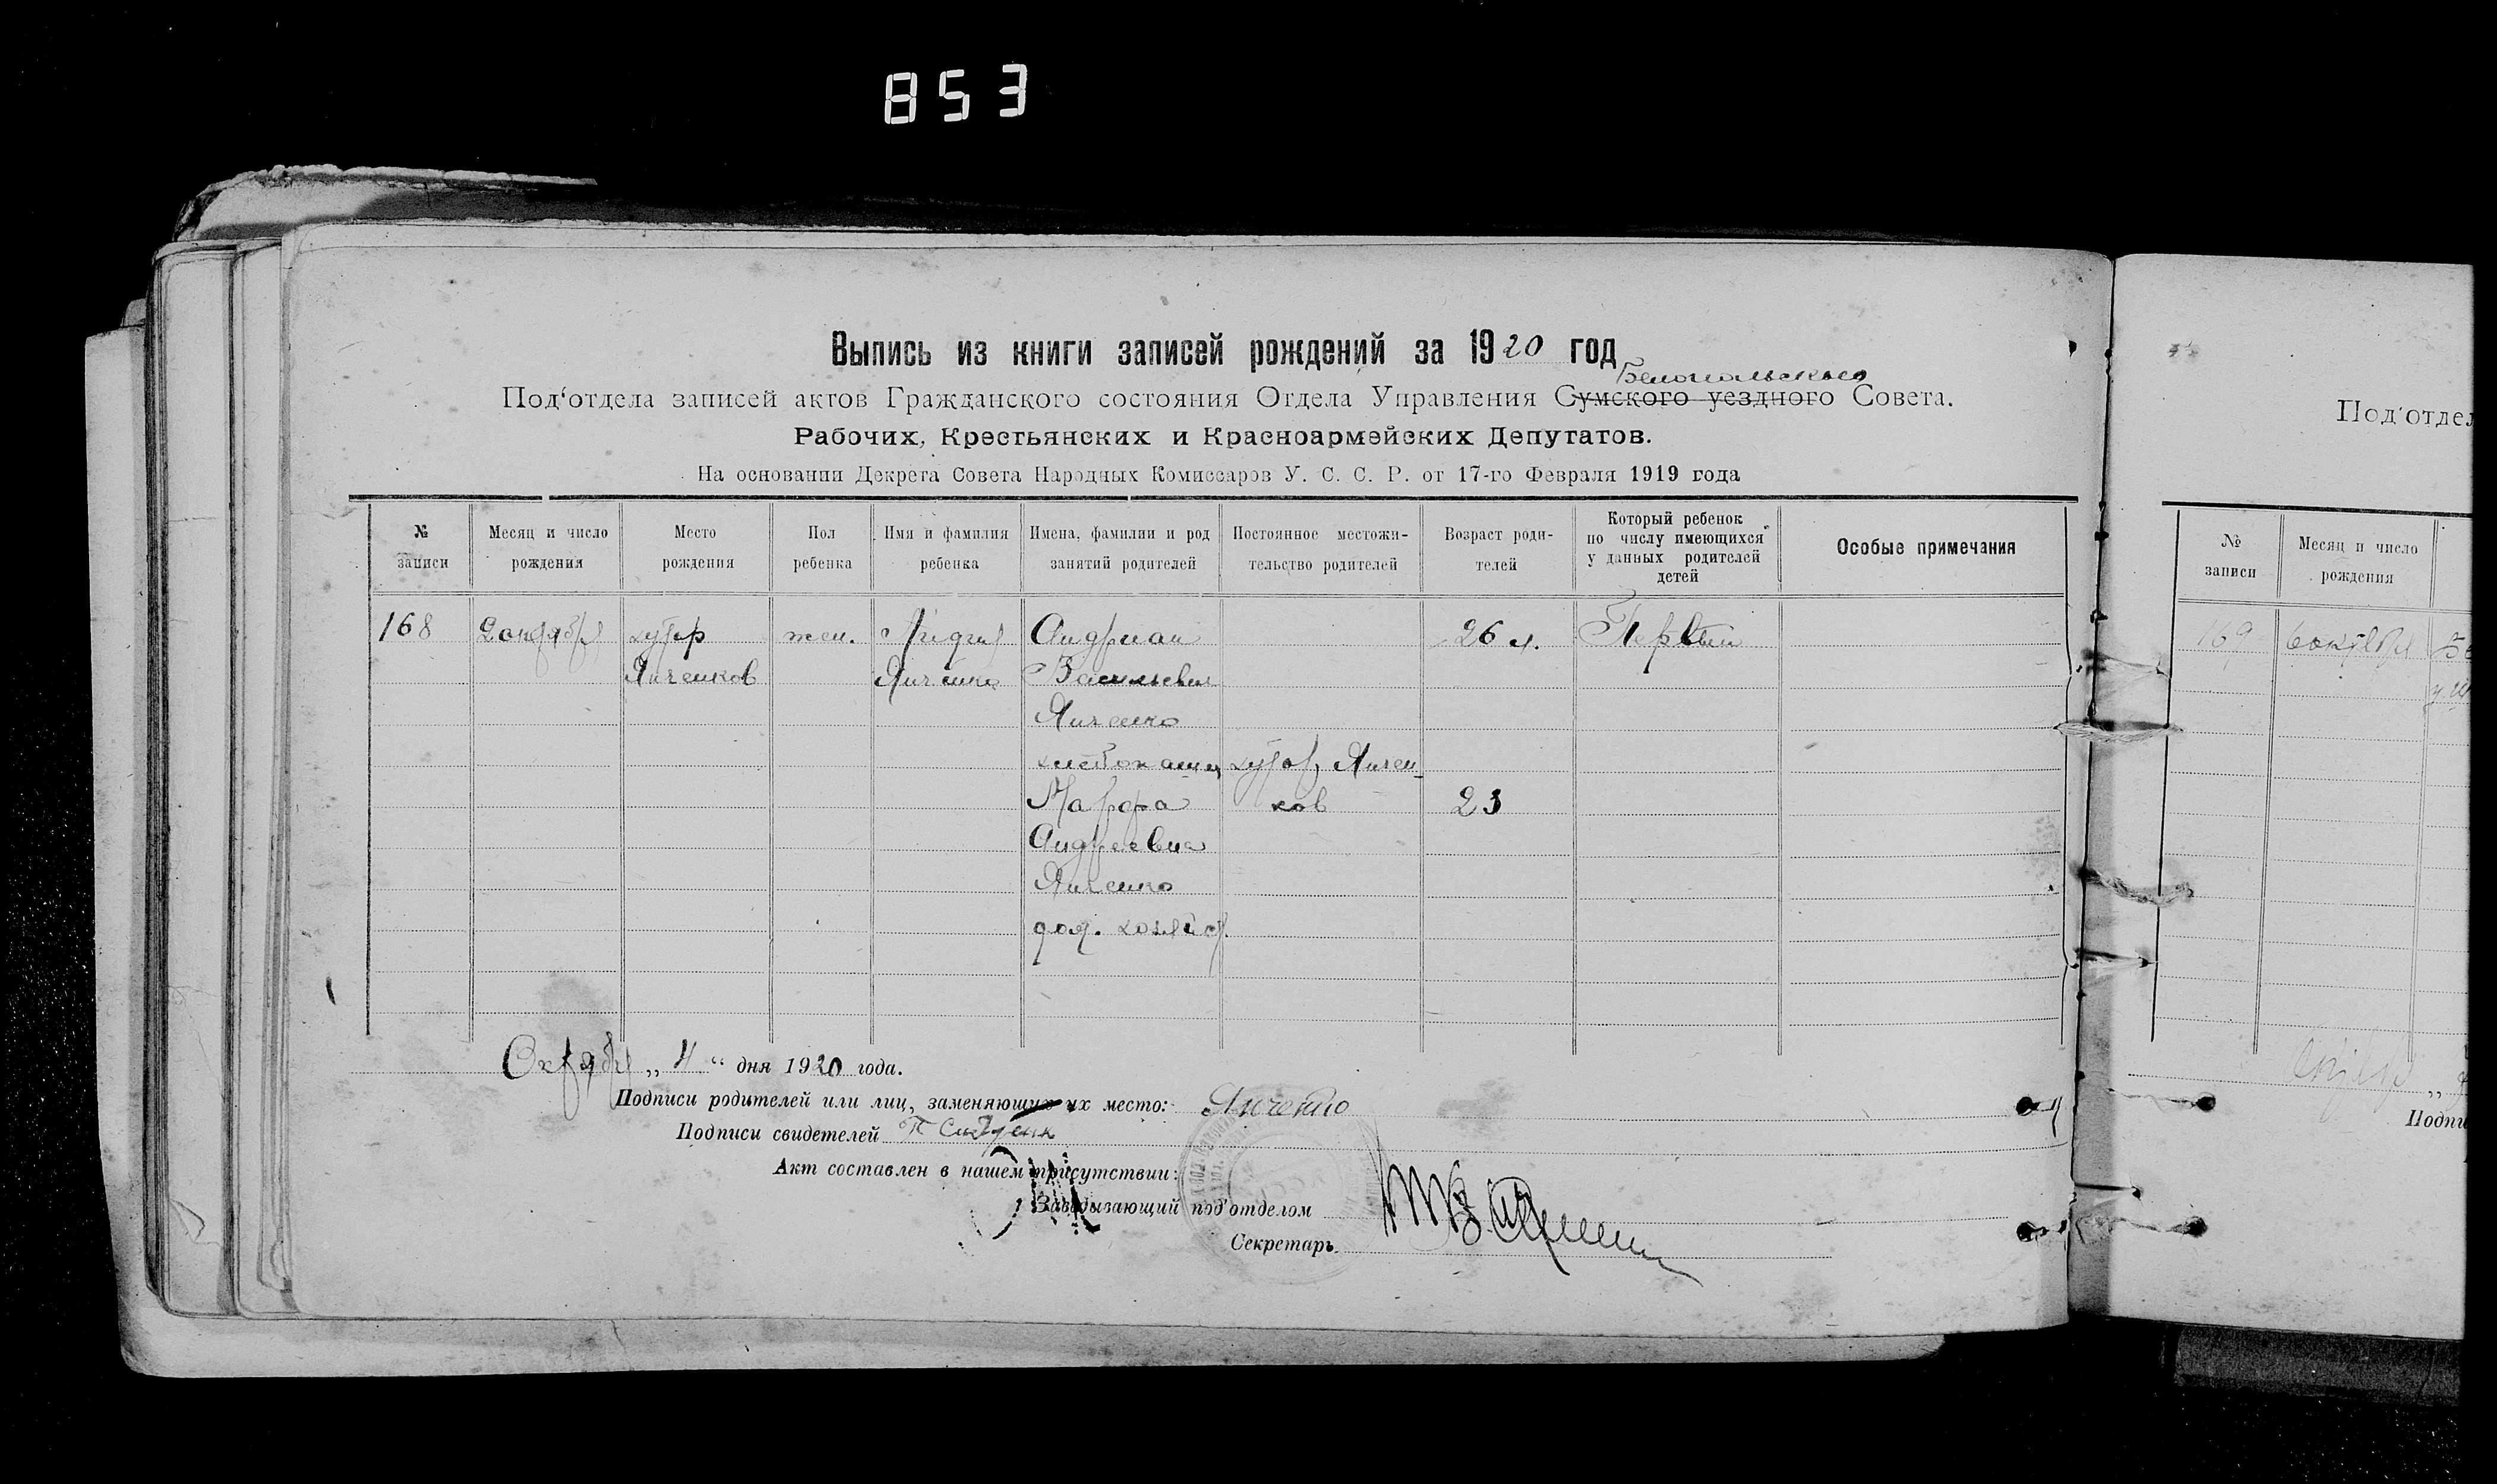 853
Выпись из книги записей рождений за 1920 год
Белопольского
Под'отдела записей актов Гражданского состояния Отдела Управления Сумского уездного Совета.
Рабочих, Крестьянских и Красноармейских Депутатов.
На основании Декрета Совета Народных Комиссаров У. С. С. Р. от 17-го Февраля 1919 года
№ записи
Месяц и число рождения
Место рождения
Пол ребенка
Имя и фамилия ребенка
Имена, фамилии и род занятий родителей
Постоянное местожи-тельство родителей
Возраст роди-телей
Который ребенок по числу имеющихся у данных родителей детей
Особые примечания
168 2 октября хутор жен. Лидия Андриан 26 л. Первый
Янченков Янченко Васильевич
Янченко
хлебопашец хутор Янчен-
Марфа ков 23
Андреевна
Янченко
дом. хозяйст.
Октября „ 4 “ дня 1920 года.
Подписи родителей или лиц, заменяющих их место: Янченко
Подписи свидетелей
Акт составлен в нашем присутствии:
Заведывающий под'отделом
Секретарь
Под'отдел
№ записи
Месяц и число рождения
169 6 октября
Подпи